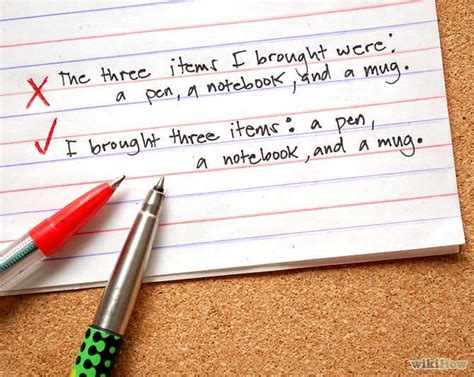 x The three items I brought were:
a pen, a notebook, and a mug.
✓ I brought three items: a pen,
a notebook, and a mug.
wikiHow